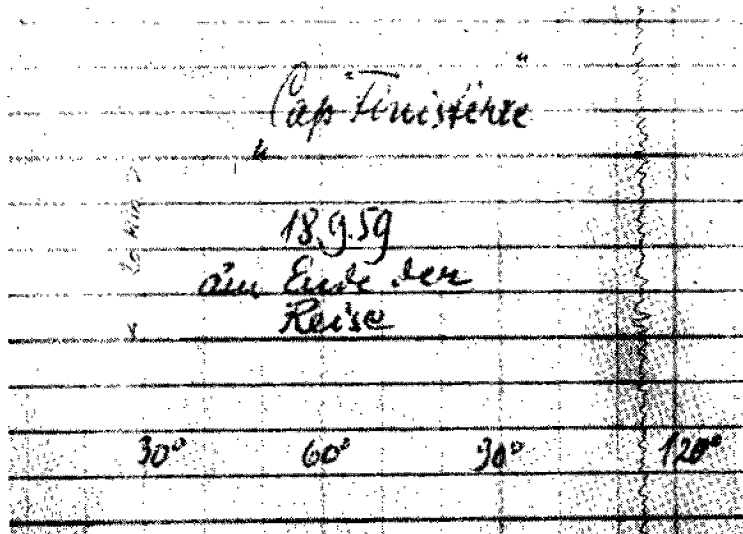 „Cap Finisterre“
18.9.59
am Ende der
Reise
30° 60° 90° 120°